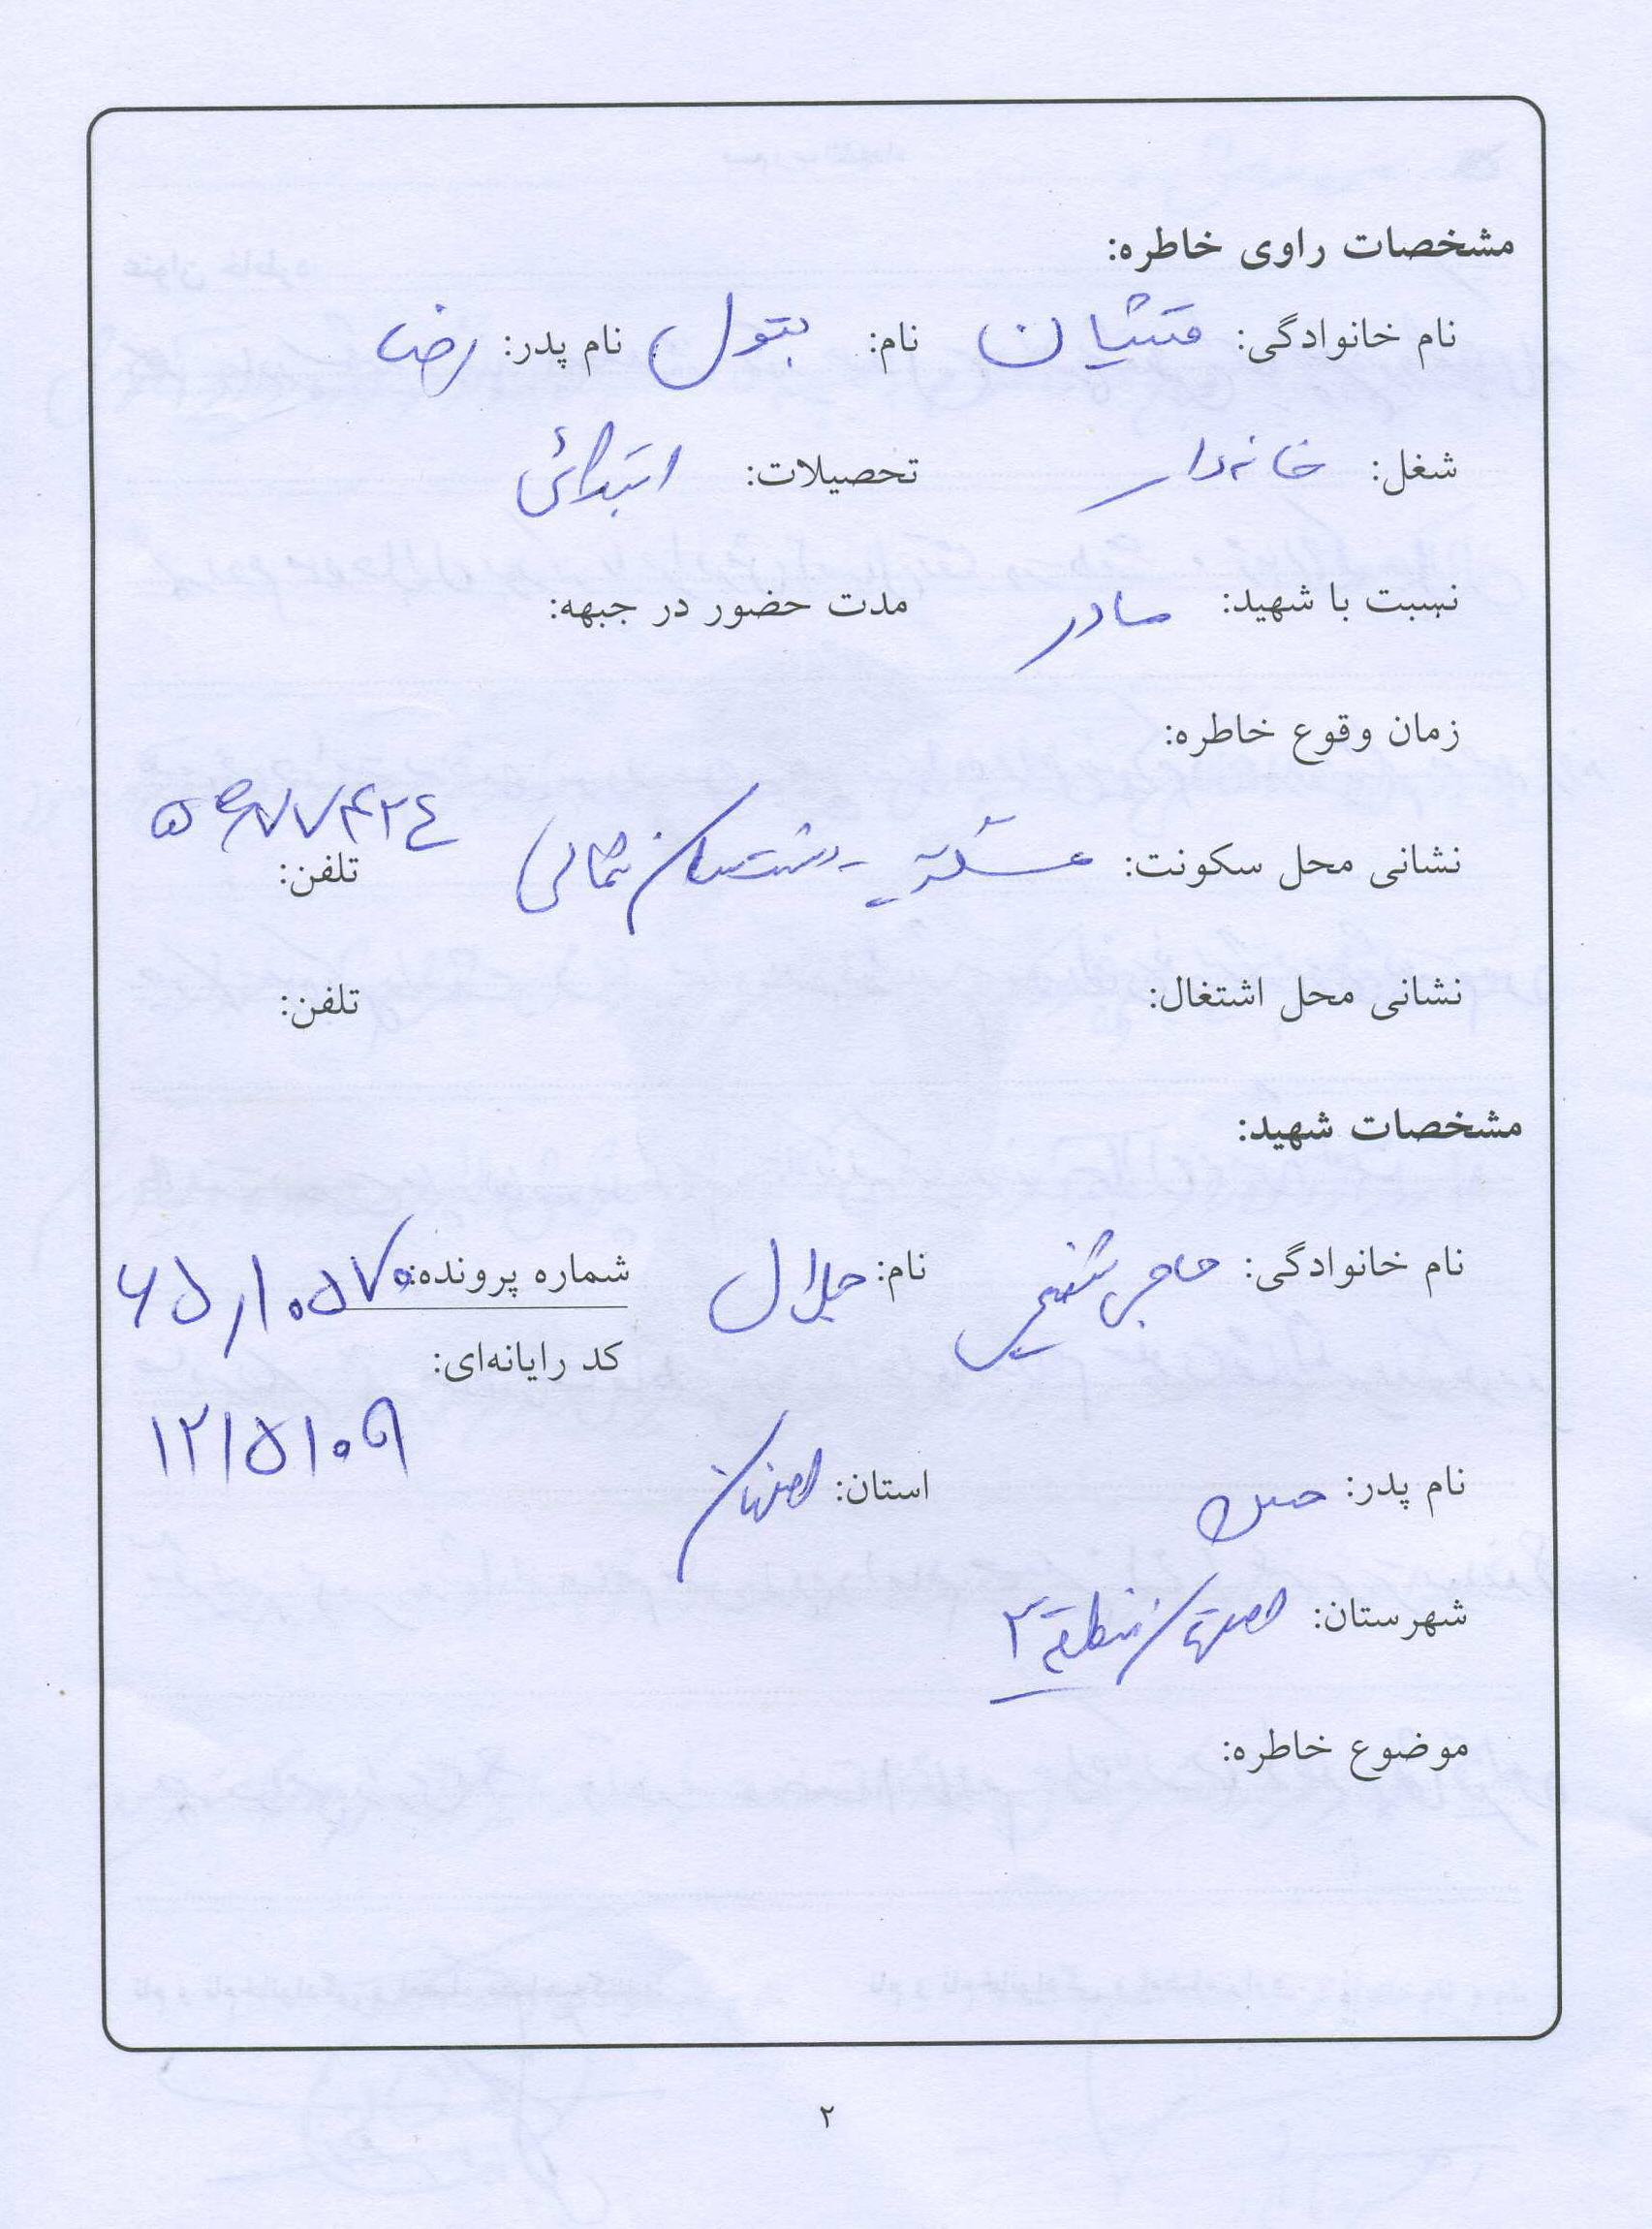 مشخصات راوی خاطره:
نام خانوادگی: نام: بتول نام پدر: رضا
شغل: خانه‌دار تحصیلات: ابتدائی
نسبت با شهید: مادر مدت حضور در جبهه:
زمان وقوع خاطره:
نشانی محل سکونت: عسگریه - دشتستان شمالی تلفن:
نشانی محل اشتغال: تلفن:
مشخصات شهید:
نام خانوادگی: نام: جلال شماره پرونده: ۶۵/۱۰۵۷۰
کد رایانه‌ای:
۱۲۱۵۱۰۹
نام پدر: حسن استان: اصفهان
شهرستان: اصفهان منطقه ۲
موضوع خاطره:
۲